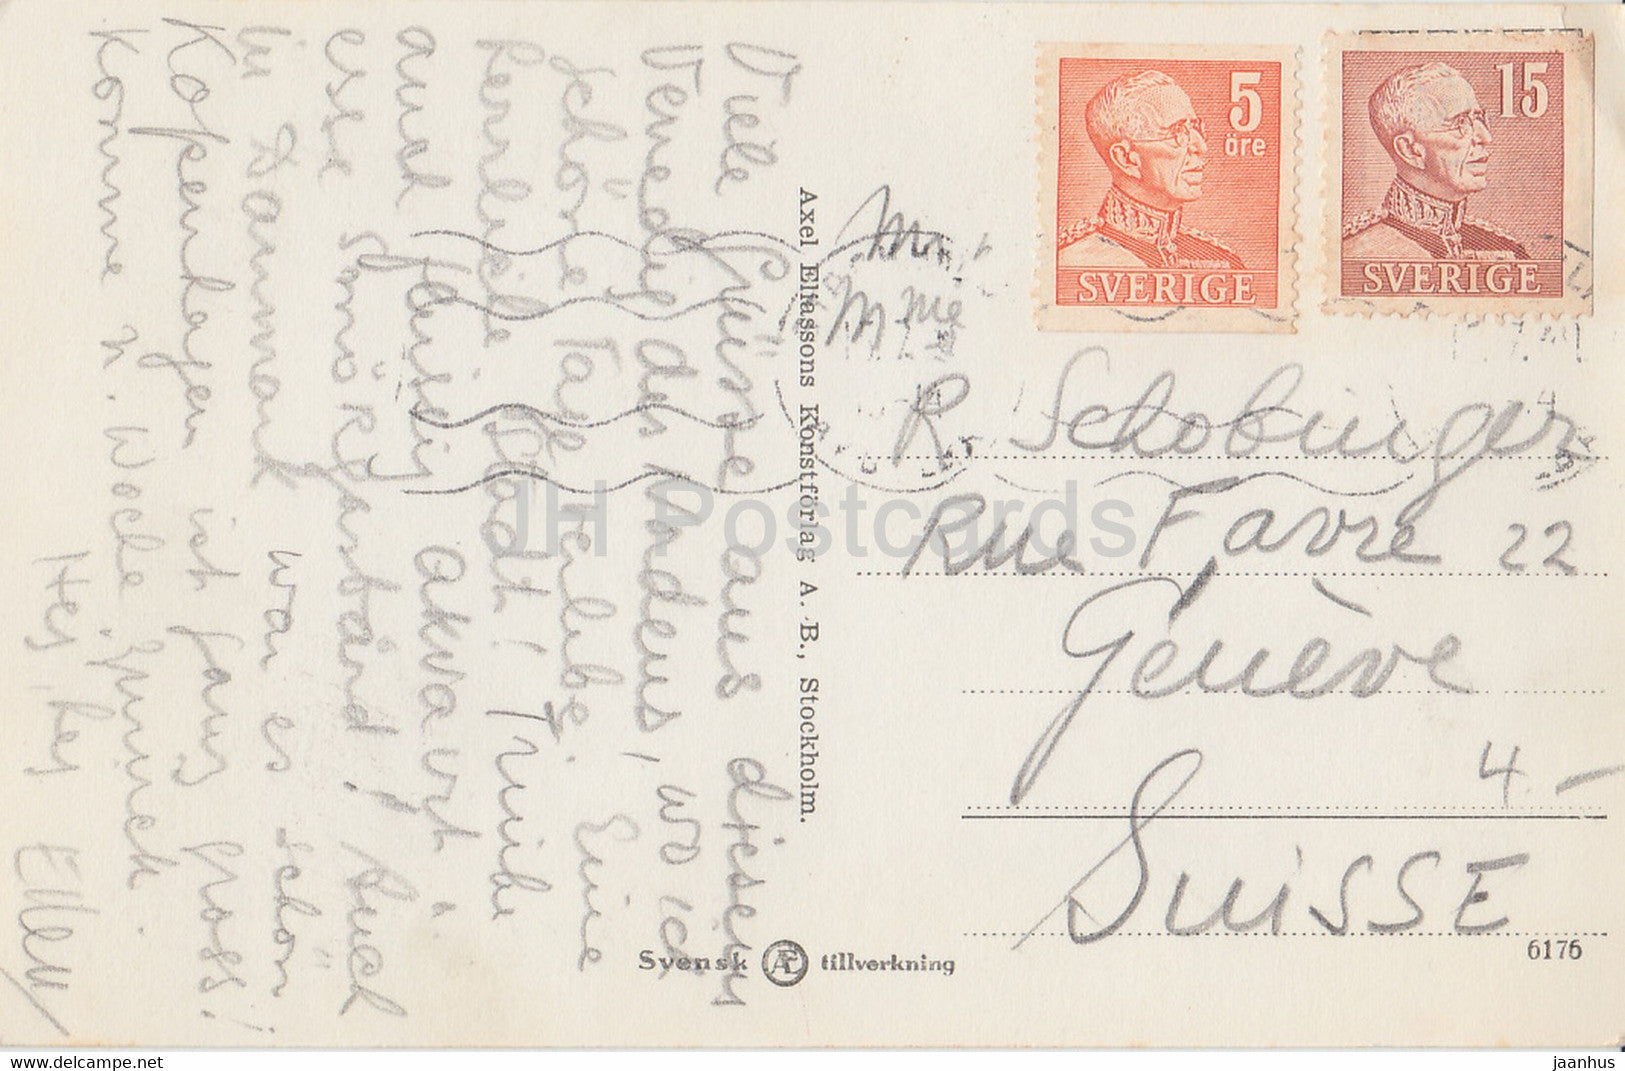 Viele Grüsse aus diesem
Venedig des Nordens, wo ich
schöne Tage verlebe. Eine
herrliche Stadt! Trinke
auch fleissig akvavit &
esse smörgåsbord! Auch
in Danmark war es schön
Kopenhagen ist ganz gross!
Komme n. Woche zurück.
Hej, hej Elley
Axel Eliassons Konstförlag A.-B., Stockholm.
Svensk AE tillverkning
5
öre
SVERIGE
15
SVERIGE
M. &
Mme
R. Schobinger
Rue Favre 22
Genève
4.-
SUISSE
6176
JH Postcards
https://www.delcampe.net
jaanhus